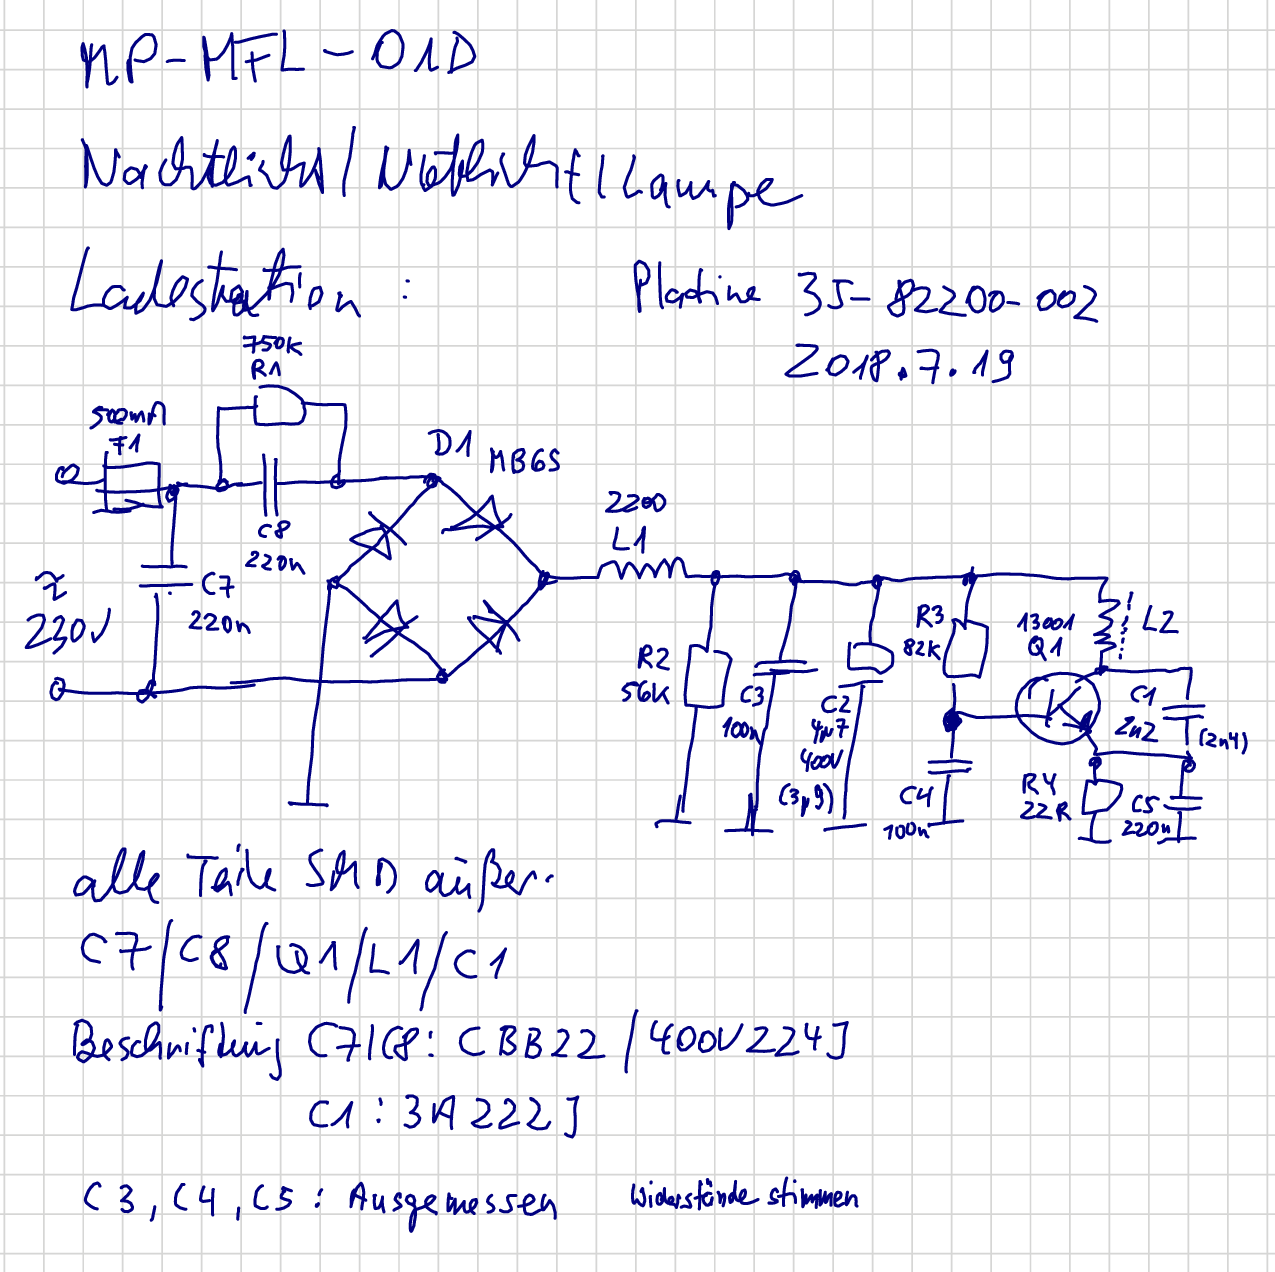 MP-MFL-01D
Nachtlicht / Notlicht / Lampe
Ladestation :
Platine 35-82200-002
2018.7.19
750K
R1
500mA
F1
D1 MB6S
C8
220n
2200
L1
~
230V
C7
220n
R2
56K
C3
100n
C2
4µ7
400V
(3µ9)
R3
82K
13001
Q1
L2
C1
2n2
(2n4)
C4
100n
R4
22R
C5
220n
alle Teile SMD außer:
C7/C8/Q1/L1/C1
Beschriftung C7/C8: CBB22 /400V224J
C1: 3A222J
C3, C4, C5: Ausgemessen
Widerstände stimmen